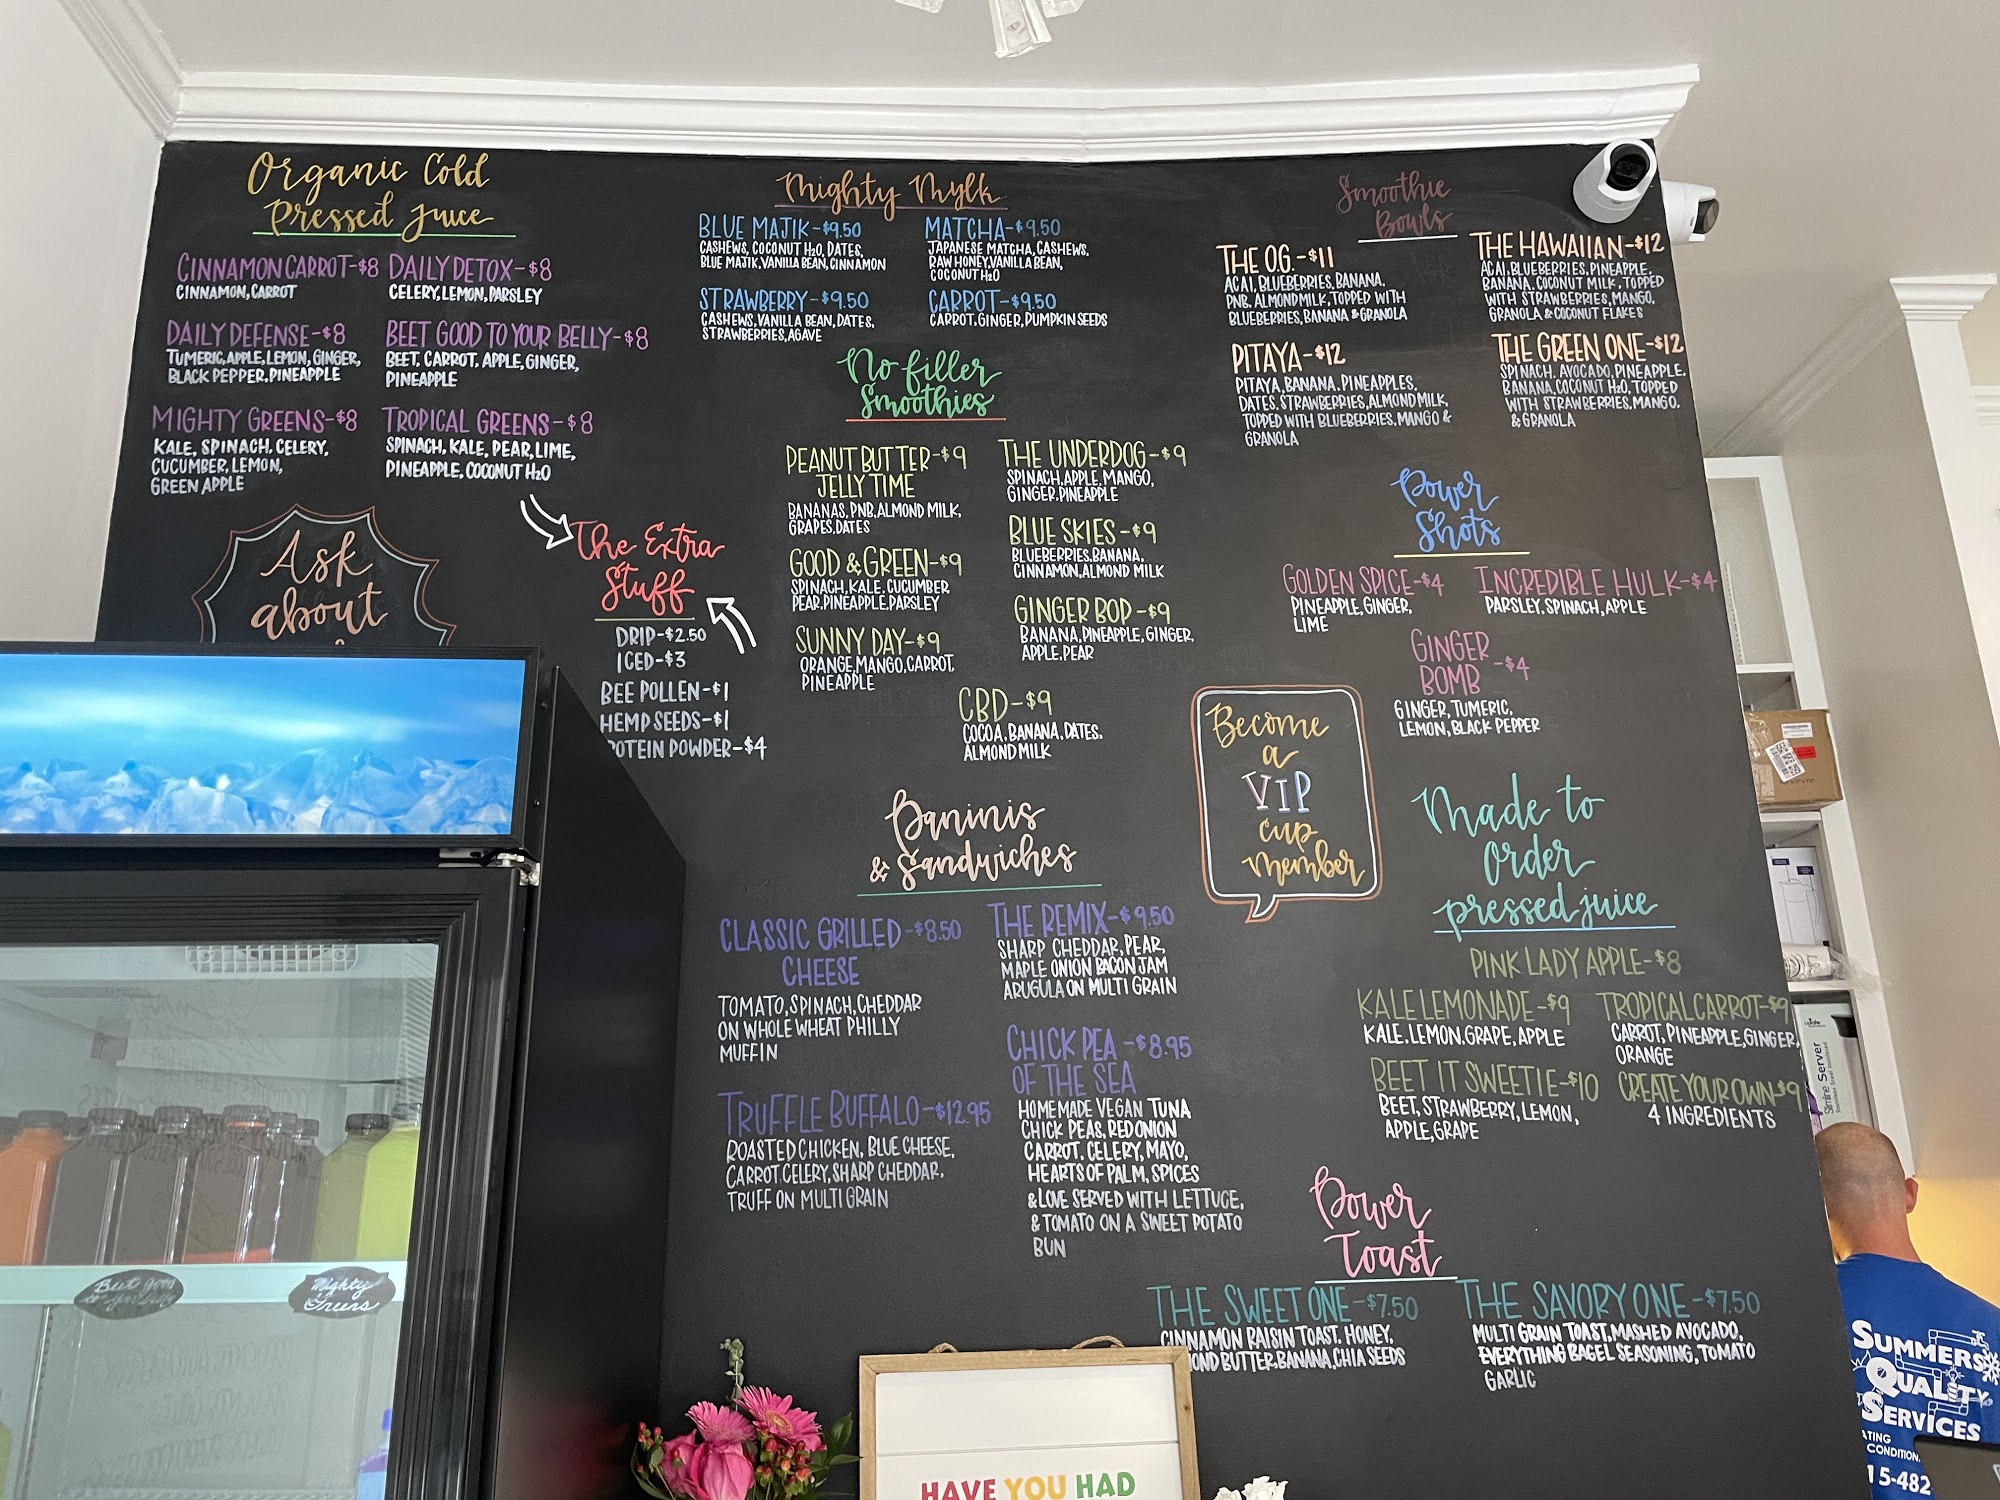 Organic Cold
Pressed Juice
CINNAMON CARROT-$8
CINNAMON, CARROT
DAILY DETOX-$8
CELERY, LEMON, PARSLEY
DAILY DEFENSE-$8
TUMERIC, APPLE, LEMON, GINGER,
BLACK PEPPER, PINEAPPLE
BEET GOOD TO YOUR BELLY-$8
BEET, CARROT, APPLE, GINGER,
PINEAPPLE
MIGHTY GREENS-$8
KALE, SPINACH, CELERY,
CUCUMBER, LEMON,
GREEN APPLE
TROPICAL GREENS-$8
SPINACH, KALE, PEAR, LIME,
PINEAPPLE, COCONUT H2O
Ask
about
The Extra
Stuff
DRIP-$2.50
ICED-$3
BEE POLLEN-$1
HEMP SEEDS-$1
ROTEIN POWDER-$4
Mighty Mylk
BLUE MAJIK-$9.50
CASHEWS, COCONUT H2O, DATES,
BLUE MAJIK, VANILLA BEAN, CINNAMON
MATCHA-$9.50
JAPANESE MATCHA, CASHEWS,
RAW HONEY, VANILLA BEAN,
COCONUT H2O
STRAWBERRY-$9.50
CASHEWS, VANILLA BEAN, DATES,
STRAWBERRIES, AGAVE
CARROT-$9.50
CARROT, GINGER, PUMPKIN SEEDS
No filler
Smoothies
PEANUT BUTTER-$9
JELLY TIME
BANANAS, PNB, ALMOND MILK,
GRAPES, DATES
THE UNDERDOG-$9
SPINACH, APPLE, MANGO,
GINGER, PINEAPPLE
BLUE SKIES-$9
BLUEBERRIES, BANANA,
CINNAMON, ALMOND MILK
GOOD & GREEN-$9
SPINACH, KALE, CUCUMBER
PEAR, PINEAPPLE, PARSLEY
GINGER BOD-$9
BANANA, PINEAPPLE, GINGER,
APPLE, PEAR
SUNNY DAY-$9
ORANGE, MANGO, CARROT,
PINEAPPLE
CBD-$9
COCOA, BANANA, DATES,
ALMOND MILK
Paninis
& Sandwiches
CLASSIC GRILLED-$8.50
CHEESE
TOMATO, SPINACH, CHEDDAR
ON WHOLE WHEAT PHILLY
MUFFIN
THE REMIX-$9.50
SHARP CHEDDAR, PEAR,
MAPLE ONION BACON JAM
ARUGULA ON MULTI GRAIN
TRUFFLE BUFFALO-$12.95
ROASTED CHICKEN, BLUE CHEESE,
CARROT, CELERY, SHARP CHEDDAR,
TRUFF ON MULTI GRAIN
CHICK PEA-$8.95
OF THE SEA
HOMEMADE VEGAN TUNA
CHICK PEAS, RED ONION
CARROT, CELERY, MAYO,
HEARTS OF PALM, SPICES
& LOVE SERVED WITH LETTUCE,
& TOMATO ON A SWEET POTATO
BUN
Smoothie
Bowls
THE O.G.-$11
ACAI, BLUEBERRIES, BANANA,
PNB, ALMOND MILK, TOPPED WITH
BLUEBERRIES, BANANA & GRANOLA
THE HAWAIIAN-$12
ACAI, BLUEBERRIES, PINEAPPLE,
BANANA, COCONUT MILK, TOPPED
WITH STRAWBERRIES, MANGO,
GRANOLA & COCONUT FLAKES
PITAYA-$12
PITAYA, BANANA, PINEAPPLES,
DATES, STRAWBERRIES, ALMOND MILK,
TOPPED WITH BLUEBERRIES, MANGO &
GRANOLA
THE GREEN ONE-$12
SPINACH, AVOCADO, PINEAPPLE,
BANANA, COCONUT H2O, TOPPED
WITH STRAWBERRIES, MANGO,
& GRANOLA
Power
Shots
GOLDEN SPICE-$4
PINEAPPLE, GINGER,
LIME
INCREDIBLE HULK-$4
PARSLEY, SPINACH, APPLE
GINGER
BOMB-$4
GINGER, TUMERIC,
LEMON, BLACK PEPPER
Become
a
VIP
cup
member
Made to
Order
pressed juice
PINK LADY APPLE-$8
KALE LEMONADE-$9
KALE, LEMON, GRAPE, APPLE
TROPICAL CARROT-$9
CARROT, PINEAPPLE, GINGER,
ORANGE
BEET IT SWEETIE-$10
BEET, STRAWBERRY, LEMON,
APPLE, GRAPE
CREATE YOUR OWN $9
4 INGREDIENTS
Power
Toast
THE SWEET ONE-$7.50
CINNAMON RAISIN TOAST, HONEY,
OND BUTTER, BANANA, CHIA SEEDS
THE SAVORY ONE-$7.50
MULTI GRAIN TOAST, MASHED AVOCADO,
EVERYTHING BAGEL SEASONING, TOMATO
GARLIC
Beet good
to your belly
Mighty
Greens
HAVE YOU HAD
Slimline Server
SUMMERS
QUALITY
SERVICES
ATING
CONDITION
15-482